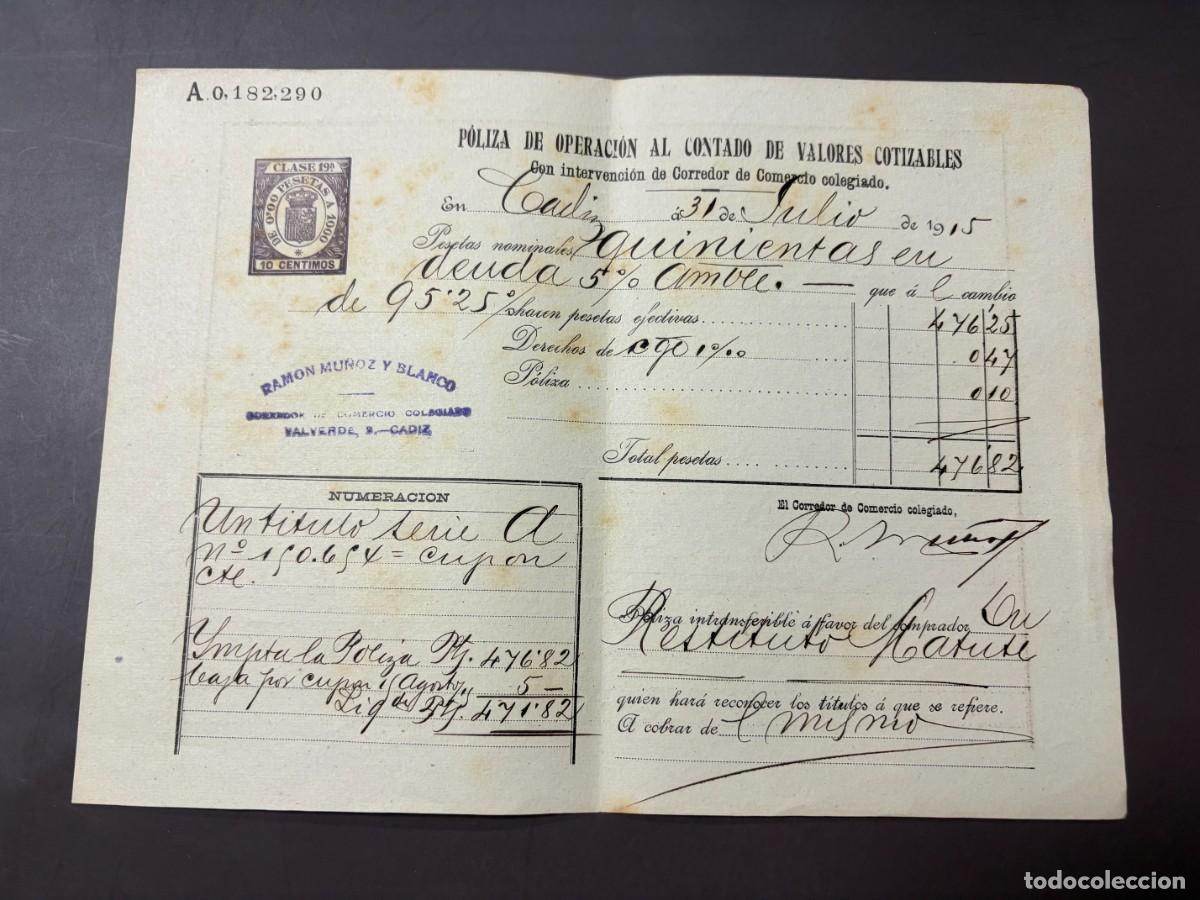 A.0,182,290
PÓLIZA DE OPERACIÓN AL CONTADO DE VALORES COTIZABLES
Con intervención de Corredor de Comercio colegiado.
CLASE 19ª
DE 0'00 PESETAS A 1000
10 CENTIMOS
En Cadiz á 31 de Julio de 1915
Pesetas nominales quinientas en
deuda 5% Amble. — que á l cambio
de 95'25% hacen pesetas efectivas 476'25
Derechos de cge 1 0/00 0 47
Póliza 0 10
Total pesetas 476'82
RAMON MUÑOZ Y BLANCO
CORREDOR DE COMERCIO COLEGIADO
VALVERDE, 9.—CADIZ
NUMERACION
Un titulo serie A
Nº 150.654 = cupon
cte.
Ympta la Poliza Ptj. 476'82
baja por cupon 15 Agosto, 5 —
Liqdo Ptj. 471'82
El Corredor de Comercio colegiado,
R. Muñoz
Póliza intransferible á favor del comprador Dn
Restituto Matute
quien hará reconocer los títulos á que se refiere.
A cobrar de l mismo
todocoleccion